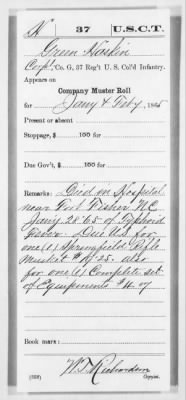 H 37 U.S.C.T.
Green Haskin
Corp'l, Co. G, 37 Reg't U. S. Col'd Infantry.
Appears on
Company Muster Roll
for Jany & Feby, 1865
Present or absent
Stoppage, $ 100 for
Due Gov't, $ 100 for
Remarks: Died in Hospital
near Fort Fisher N.C.
Jany 28/65 of Typhoid
Fever. Due U.S. for
one (1) Springfield Rifle
Musket $ 19.25 also
for one (1) Complete set
of Equipments $ 4.07
Book mark:
(858) W. T. Richardson
Copyist.